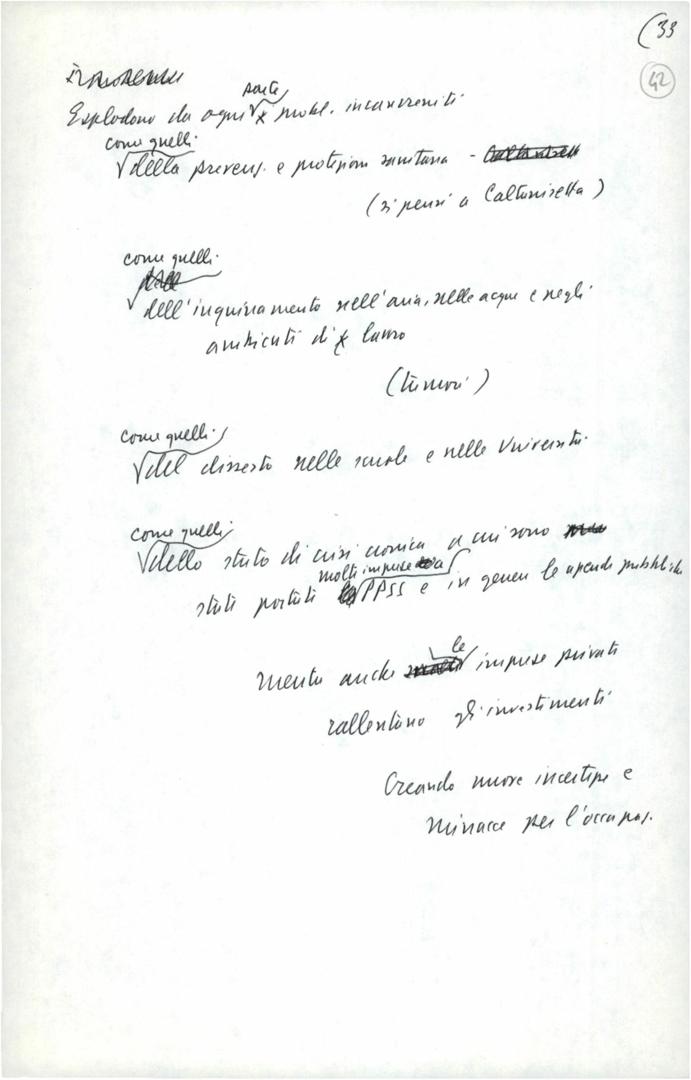 (33
42
parte
Esplodono da ogni x probl. incancreniti
come quelli
della prevenz. e protezione sanitaria -
(si pensi a Caltanisetta)
come quelli
dell'inquinamento nell'aria, nelle acque e negli
ambienti di x lavoro
(tumori)
come quelli
del dissesto nelle scuole e nelle Università
come quelli
dello stato di crisi cronica a cui sono
molte imprese a
stati portati PPSS e in genere le aziende pubbliche
le
mentre anche imprese private
rallentano gli investimenti
Creando nuove incertezze e
minacce per l'occupaz.